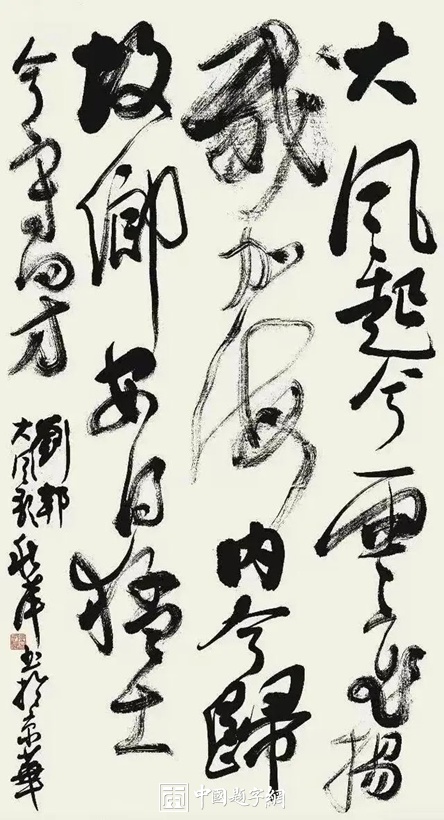 大風起兮雲飛揚
威加海内兮歸
故鄉安得猛士
兮守四方
劉邦
大風歌 書於京華
中國題字網